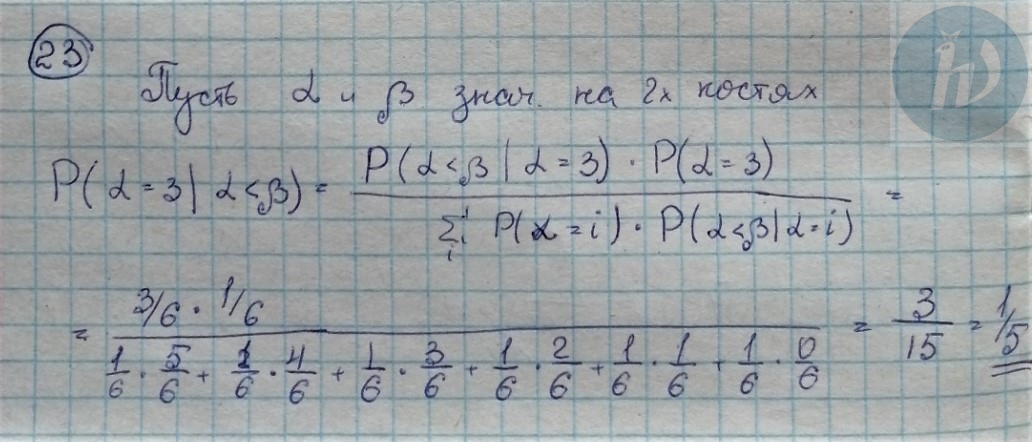 23
Пусть α и β знач. на 2х костях
P(α=3|α<β) = P(α<β|α=3)·P(α=3) / Σi P(α=i)·P(α<β|α=i) =
= 3/6·1/6 / 1/6·5/6 + 1/6·4/6 + 1/6·3/6 + 1/6·2/6 + 1/6·1/6 + 1/6·0/6 = 3/15 = 1/5